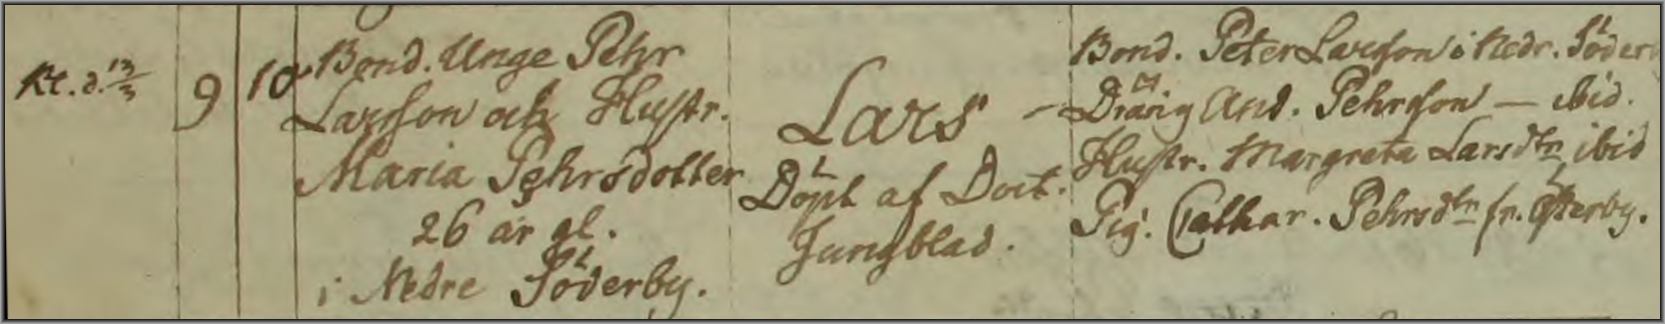 Kt. d. 13/3
9
10
Bond. Unge Pehr
Larsson och Hustr.
Maria Pehrsdotter
26 år gl.
i Nedre Söderby.
Lars
Döpt af Doct.
Jungblad.
Bond. Peter Larsson i Nedr. Söderb
Dräng And. Pehrsson — ibid.
Hustr. Margreta Larsdtr ibid
Pig. Cathar. Pehrsdtr fr. Österby.